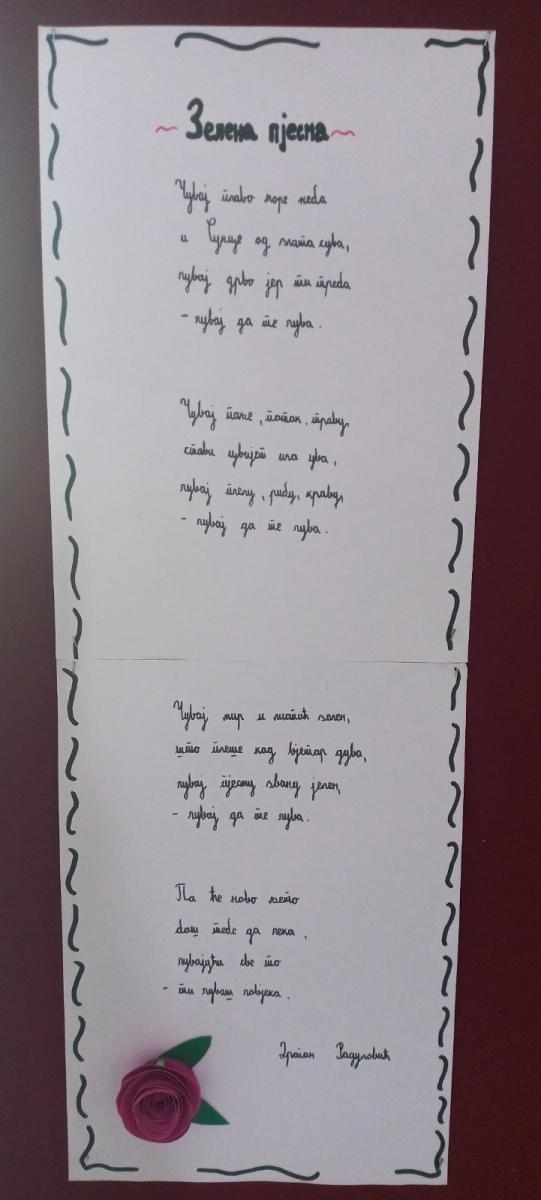 Зелена пјесма
Чувај плаво море неба
и Сунце од злата сува,
чувај дрво јер ти треба
- чувај да те чува.
Чувај поље, поток, траву,
стави цвијет иза ува,
чувај пчелу, рибу, краву,
- чувај да те чува.
Чувај мир и листић зелен,
што плеше кад вјетар дува,
чувај пјесму звану јелен,
- чувај да те чува.
Па ће ново љето
баш тебе да чека,
чувајући све то
- ти чуваш човјека.
Драган Радуловић